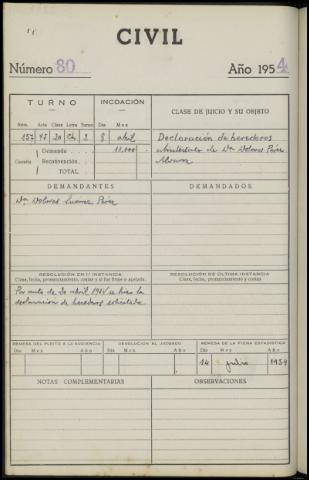 CIVIL
Número 80 Año 1954
TURNO INCOACIÓN CLASE DE JUICIO Y SU OBJETO
Núm. Acta Clase Letra Turno Día Mes
157 45 20 Ch. 2 8 abril Declaración de herederos
Cuantía Demanda 11.000 abintestato de Dª Dolores Pérez
Reconvención
TOTAL
DEMANDANTES DEMANDADOS
Dª Dolores Suarez Pérez
RESOLUCIÓN EN 1ª INSTANCIA RESOLUCIÓN DE ÚLTIMA INSTANCIA
Clase, fecha, pronunciamiento, costas y si fue firme o apelada. Clase, fecha, pronunciamiento y costas.
Por auto de 20 abril 1954 se hizo la
declaración de herederos solicitada
REMESA DEL PLEITO A LA AUDIENCIA DEVOLUCIÓN AL JUZGADO REMESA DE LA FICHA ESTADÍSTICA
Día Mes Año Día Mes Año Día Mes Año
14 julio 1954
NOTAS COMPLEMENTARIAS OBSERVACIONES